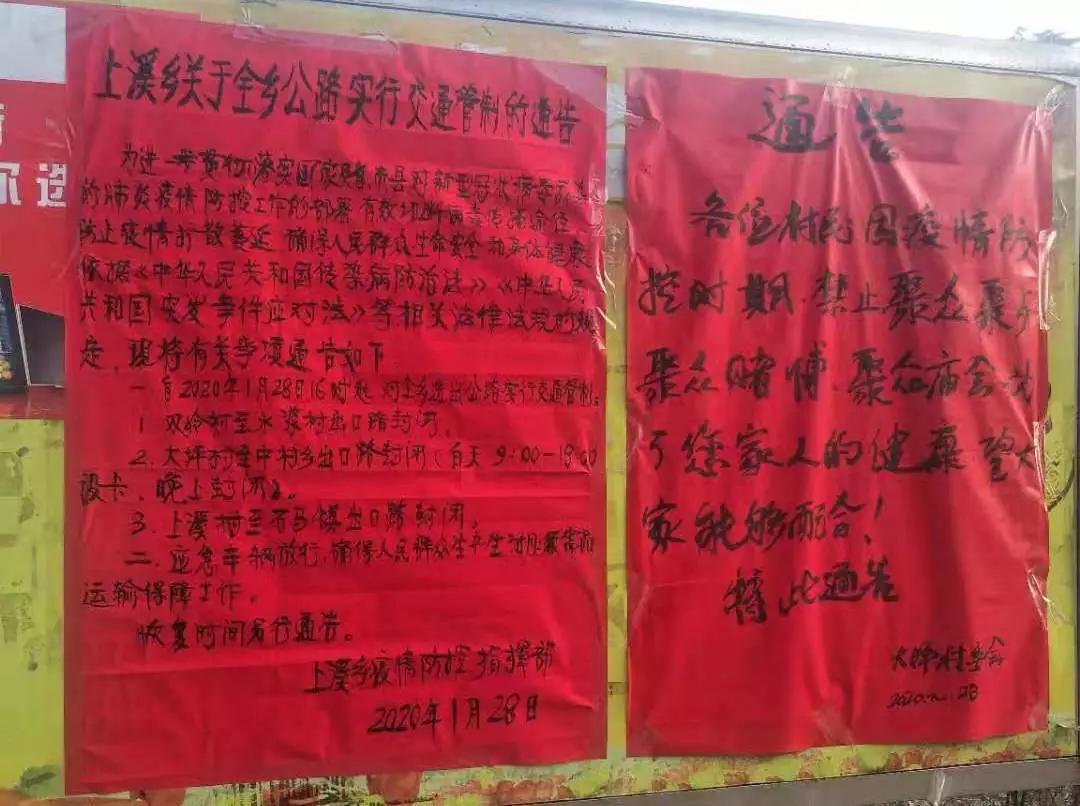 上溪乡关于全乡公路实行交通管制的通告
为进一步贯彻落实国家县市县对新型冠状病毒
的肺炎疫情防控工作的部署有效切断病毒传播途径
防止疫情扩散蔓延 确保人民群众生命安全和身体健康
依据《中华人民共和国传染病防治法》《中华人民
共和国突发事件应对法》等相关法律法规的规
定，现将有关事项通告如下
一 自2020年1月28日16时起 对全乡进出公路实行交通管制。
1 双岭村至水 村出口路封闭。
2. 大坪村至中村乡出口路封闭（白天9:00-18:00
设卡，晚上封闭）。
3. 上溪村至石马 出口路封闭。
二. 应急车辆放行，确保人民群众生产生活
运输保障工作。
恢复时间另行通告。
上溪乡疫情防控指挥部
2020年1月28日
通告
各位村民因疫情防
控时期，禁止聚众聚
聚众赌博、聚众庙会
了您家人的健康，望大
家能够配合！
特此通告
大坪村委会
2020.